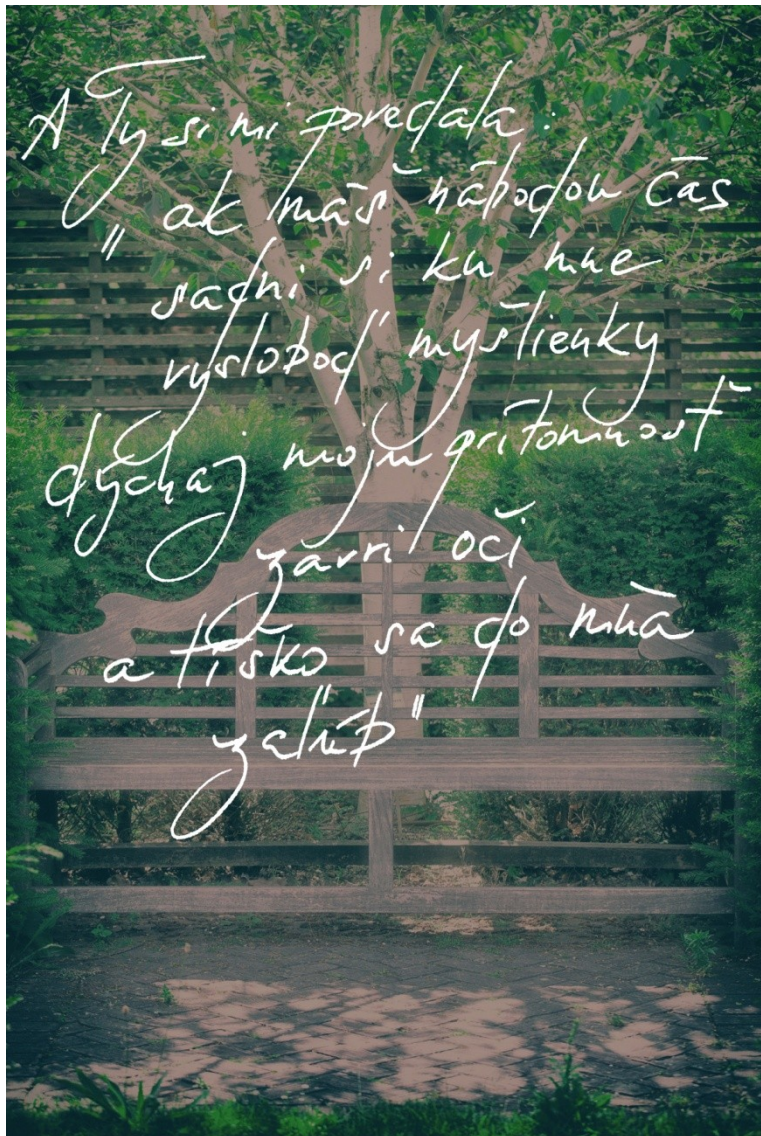 A Ty si mi povedala:
" ak máš náhodou čas
sadni si ku mne
vysloboď myšlienky
dýchaj moju prítomnosť
zavri oči
a tíško sa do mňa
zaľúb"